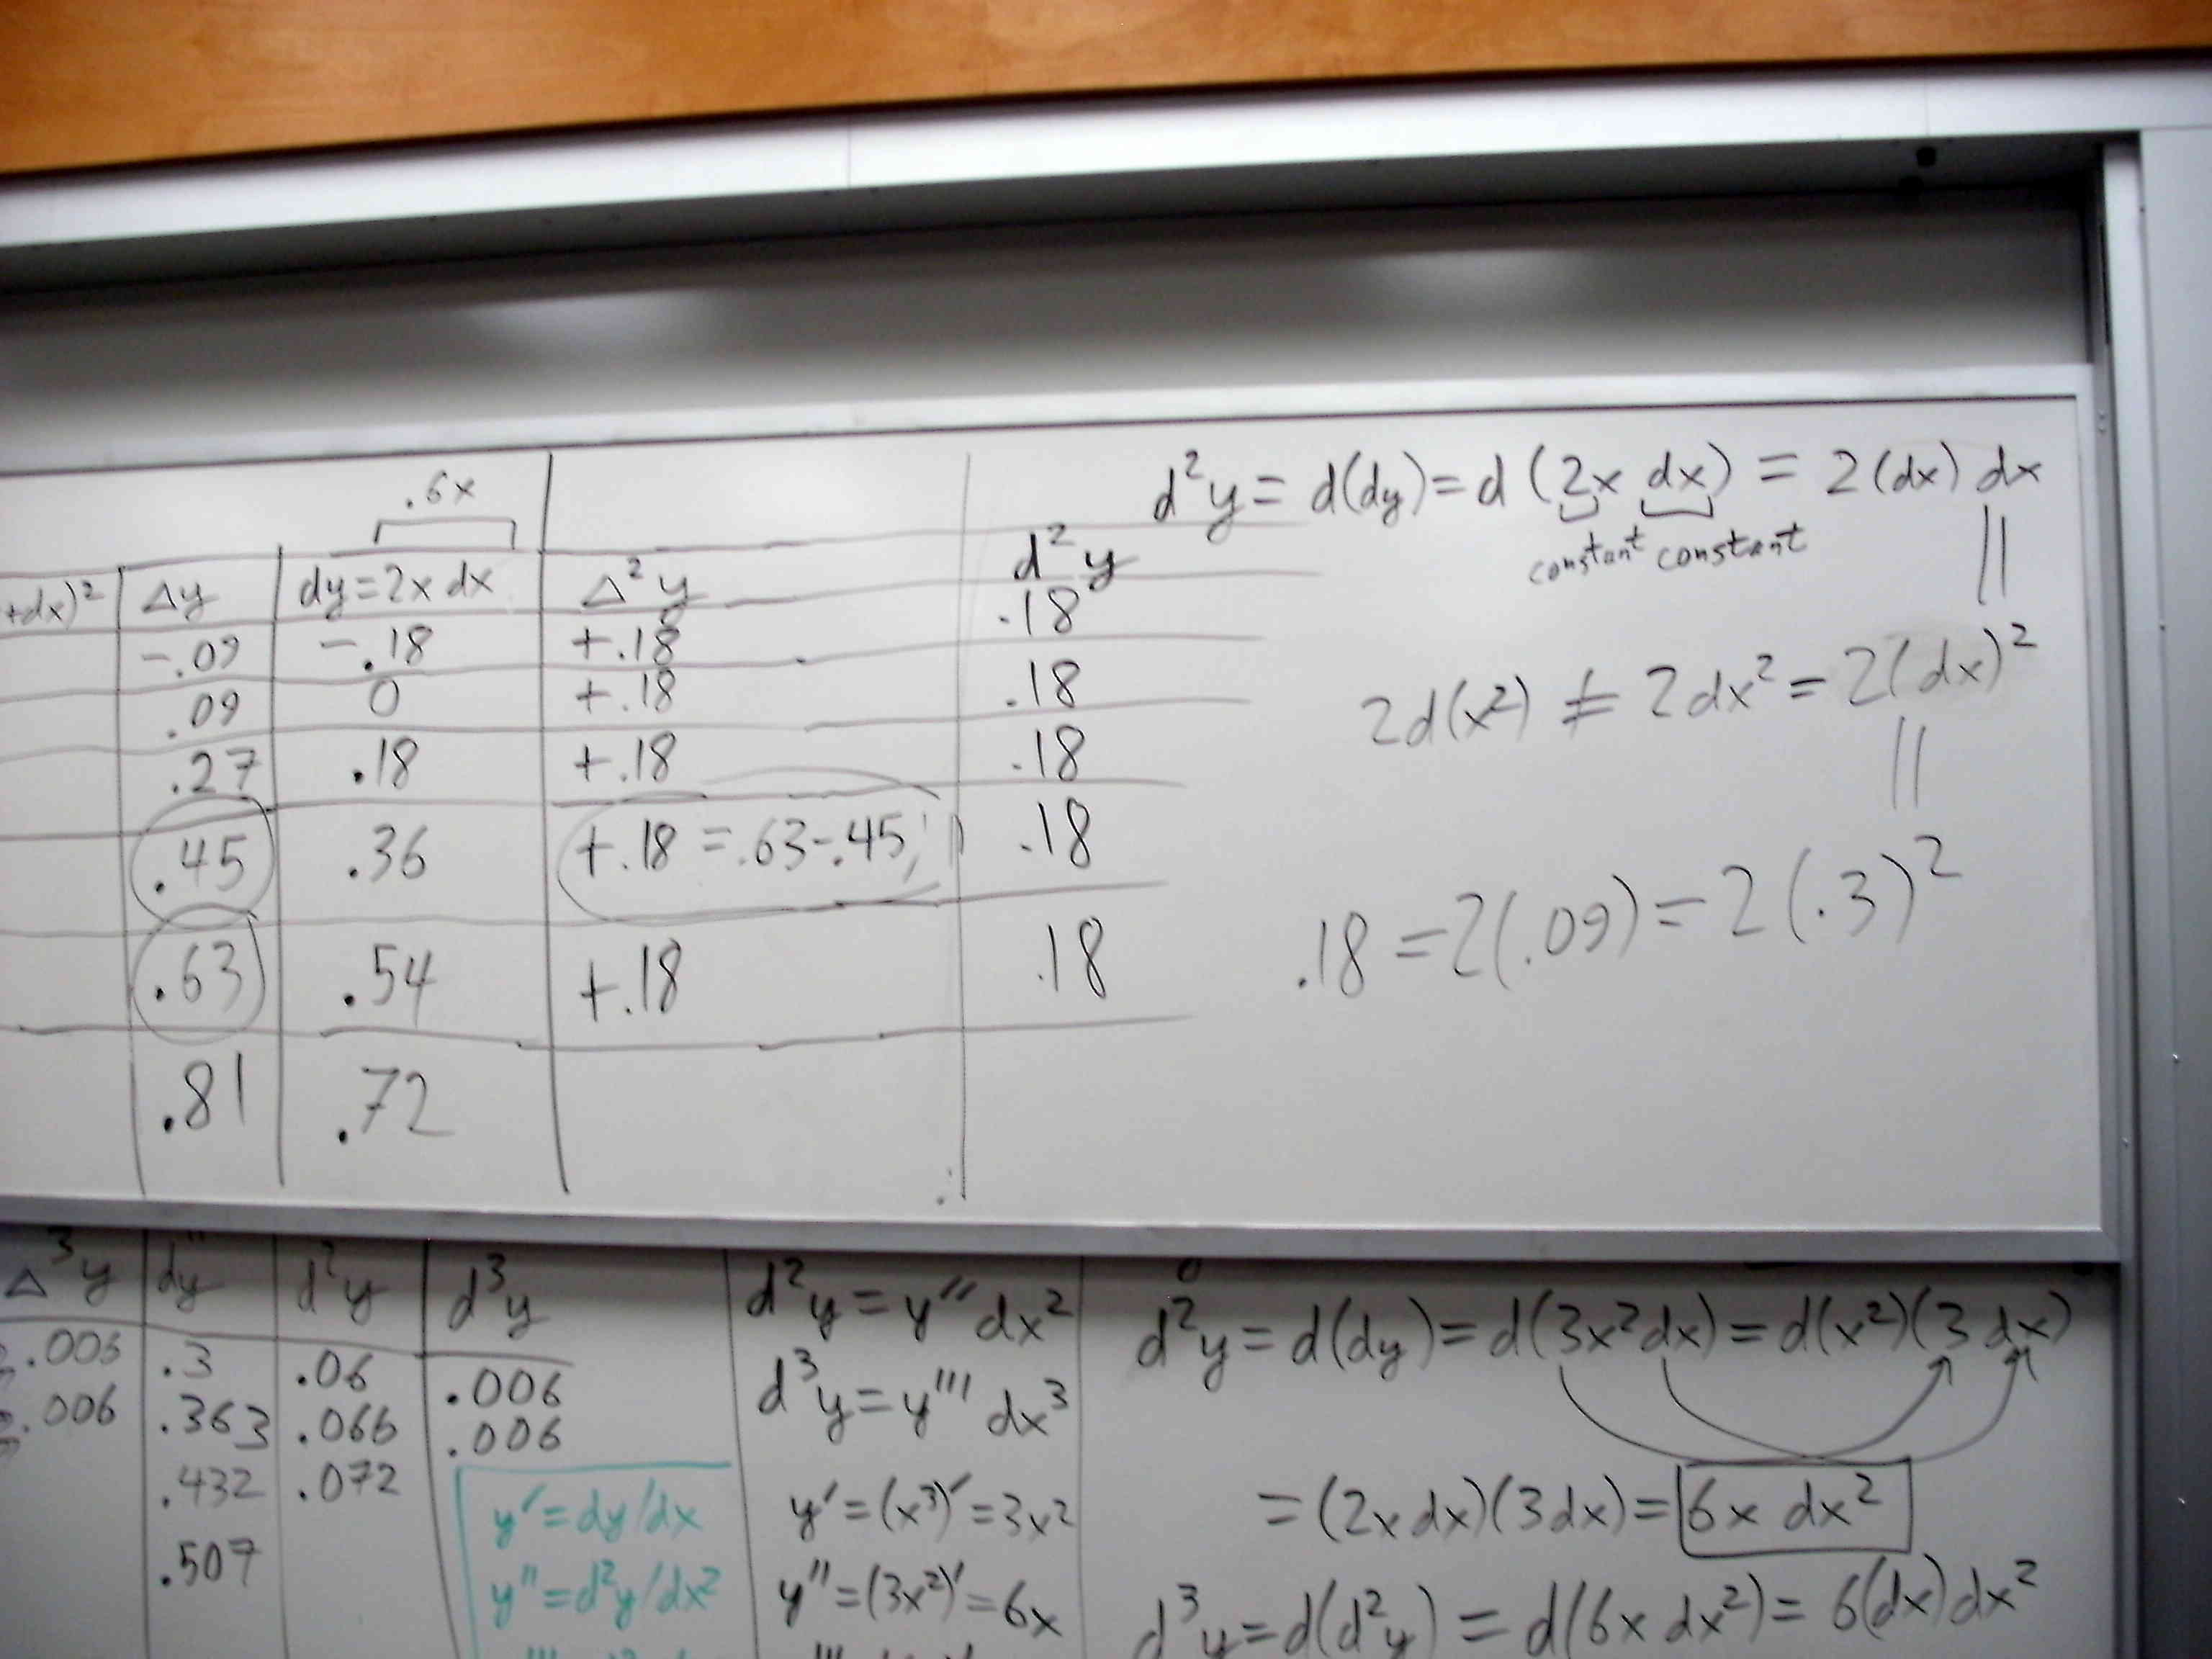 .6x
+dx)² Δy dy=2x dx Δ²y d²y
-.09 -.18 +.18 .18
.09 0 +.18 .18
.27 .18 +.18 .18
.45 .36 +.18 = .63-.45 .18
.63 .54 +.18 .18
.81 .72
d²y = d(dy) = d(2x dx) = 2(dx) dx
constant constant
||
2d(x²) ≠ 2dx² = 2(dx)²
||
.18 = 2(.09) = 2(.3)²
Δ³y dy d²y d³y
.006 .3 .06 .006
.006 .363 .066 .006
.432 .072
.507
y' = dy/dx
y'' = d²y/dx²
d²y = y'' dx²
d³y = y''' dx³
y' = (x³)' = 3x²
y'' = (3x²)' = 6x
d²y = d(dy) = d(3x²dx) = d(x²)(3 dx)
= (2x dx)(3dx) = 6x dx²
d³y = d(d²y) = d(6x dx²) = 6(dx)dx²